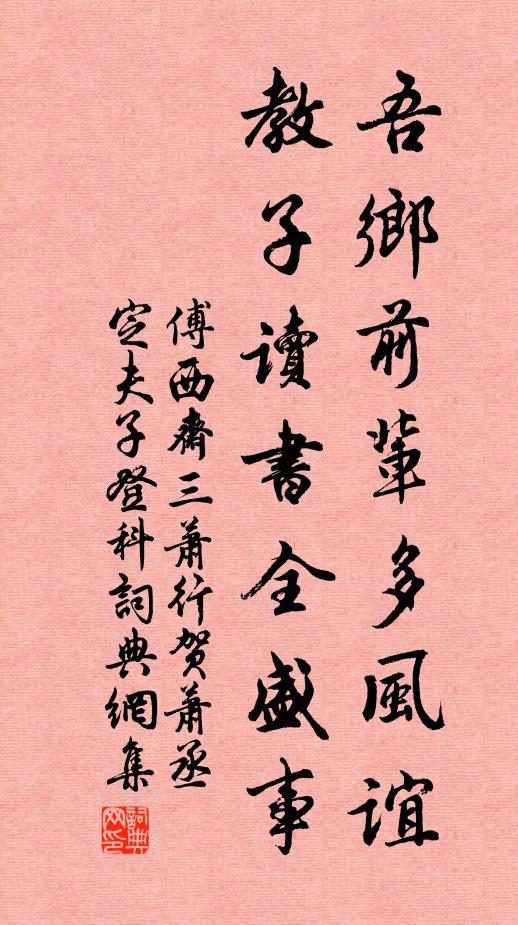 吾鄉前輩多風誼
教子讀書全盛事
傅西齋三蕭行賀蕭丞
定夫子登科詞典網集
詞典网印